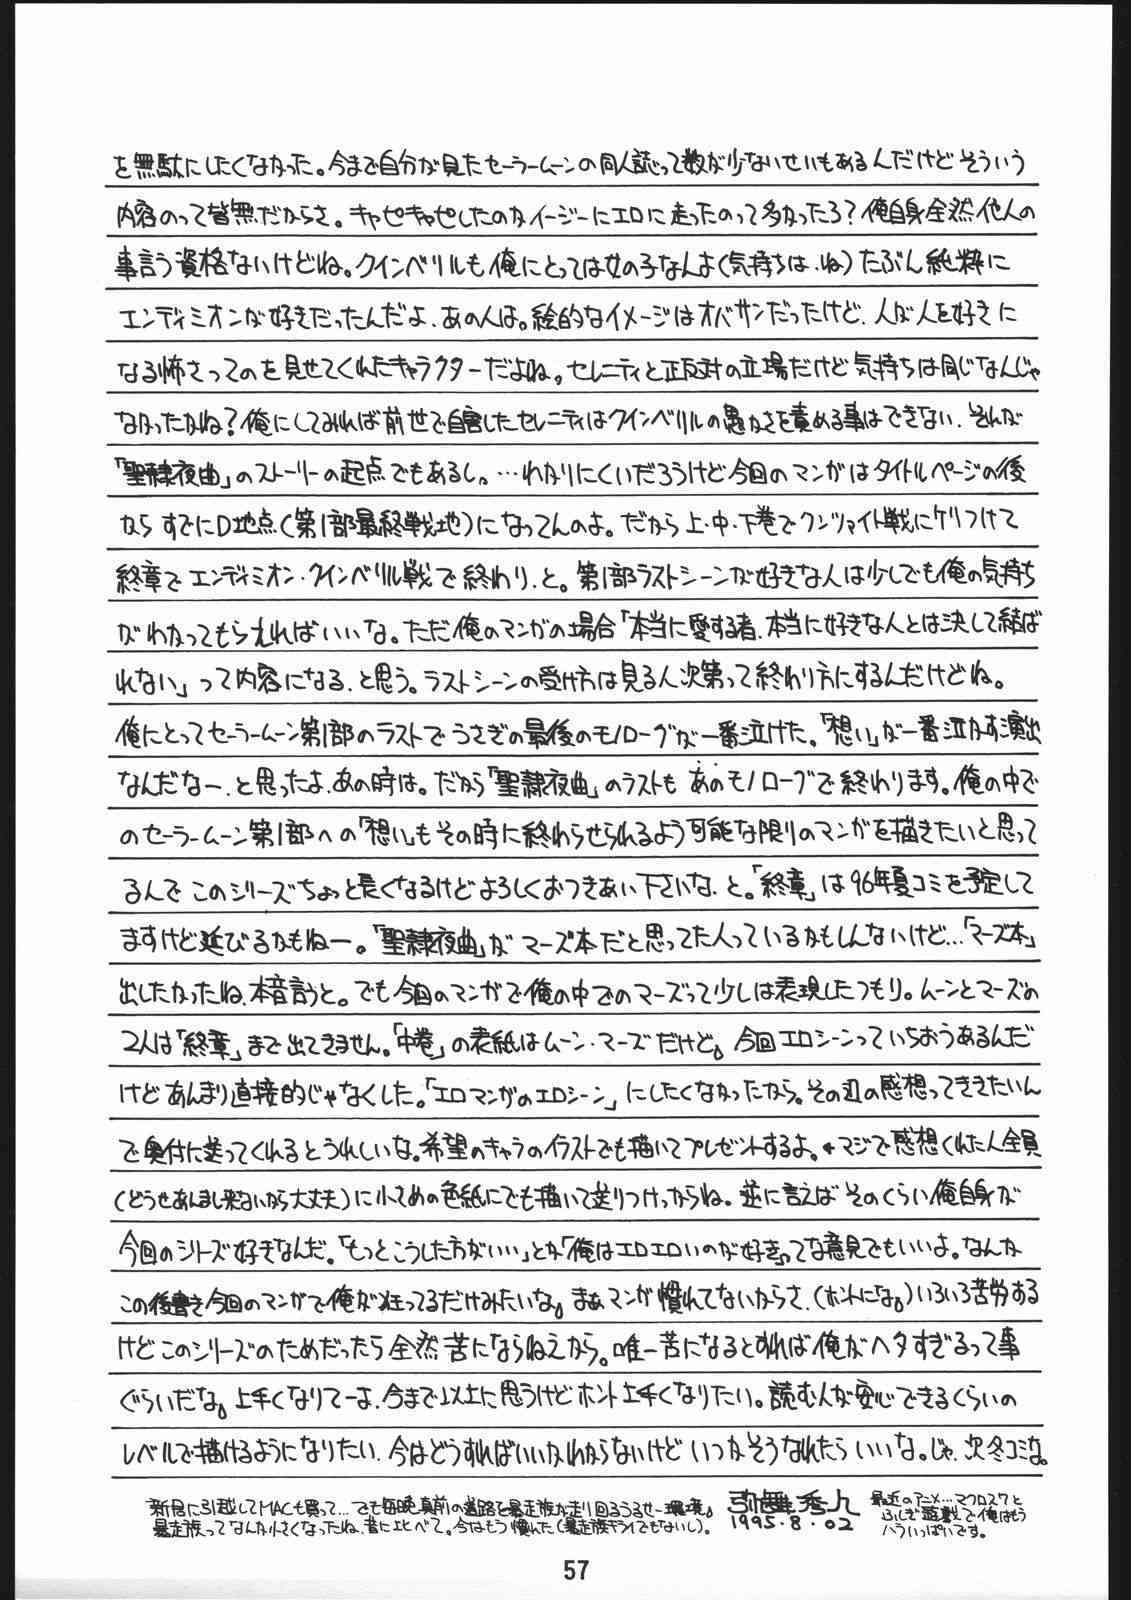 を無駄にしたくなかった。今まで自分が見たセーラームーンの同人誌って数が少ないせいもあるんだけどそういう
内容のって皆無だからさ。キャピキャピしたのがイージーにエロに走ったのって多かったろ？俺自身全然他人の
事言う資格ないけどね。クインベリルも俺にとっては女の子なんよ(気持ちは、ね)たぶん純粋に
エンディミオンが好きだったんだよ、あの人は。絵的なイメージはオバサンだったけど、人が人を好きに
なる怖さってのを見せてくれたキャラクターだよね。セレニティと正反対の立場だけど気持ちは同じなんじゃ
なかったかね？俺にしてみれば前世で自害したセレニティはクインベリルの愚かさを責める事はできない、それが
「聖隷夜曲」のストーリーの起点でもあるし。…わかりにくいだろうけど今回のマンガはタイトルページの後
からすでにD地点(第1部最終戦地)になってんのよ。だから上・中・下巻でクンツァイト戦にケリつけて
終章でエンディミオン・クインベリル戦で終わり、と。第1部ラストシーンが好きな人は少しでも俺の気持ち
がわかってもらえればいいな。ただ俺のマンガの場合「本当に愛する者、本当に好きな人とは決して結ば
れない」って内容になる、と思う。ラストシーンの受け方は見る人次第って終わり方にするんだけどね。
俺にとってセーラームーン第1部のラストでうさぎの最後のモノローグが一番泣けた。「想い」が一番泣かす演出
なんだなー、と思ったよ、あの時は。だから「聖隷夜曲」のラストもあのモノローグで終わります。俺の中で
のセーラームーン第1部への「想い」もその時に終わらせられるよう可能な限りのマンガを描きたいと思って
るんでこのシリーズちょっと長くなるけどよろしくおつきあい下さいな、と。「終章」は96年夏コミを予定して
ますけど延びるかもねー。「聖隷夜曲」がマーズ本だと思ってた人っているかもしんないけど…「マーズ本」
出したかったね、本音言うと。でも今回のマンガで俺の中でのマーズって少しは表現したつもり。ムーンとマーズの
2人は「終章」まで出てきません。「中巻」の表紙はムーン・マーズだけど。今回エロシーンっていちおうあるんだ
けどあんまり直接的じゃなくした。「エロマンガのエロシーン」にしたくなかったから。その辺の感想ってききたいん
で奥付に送ってくれるとうれしいな。希望のキャラのイラストでも描いてプレゼントするよ。←マジで感想くれた人全員
(どうせあんまし来ないから大丈夫)に小さめの色紙にでも描いて送りつけっからね。逆に言えばそのくらい俺自身が
今回のシリーズ好きなんだ。「もっとこうした方がいい」とか「俺はエロエロいのが好き」ってな意見でもいいよ。なんか
この後書き今回のマンガで俺が狂ってるだけみたいな。まぁマンガ慣れてないからさ、(ホントにな。)いろいろ苦労する
けどこのシリーズのためだったら全然苦にならねえから。唯一苦になるとすれば俺がヘタすぎるって事
ぐらいだな。上手くなりてーよ、今まで以上に思うけどホント上手くなりたい。読む人が安心できるくらいの
レベルで描けるようになりたい、今はどうすればいいかわからないけどいつかそうなれたらいいな。じゃ、次冬コミな。
新居に引越してMACも買って…でも毎晩真前の道路を暴走族が走り回るうるせー環境。
暴走族ってなんか小さくなったね、昔に比べて。今はもう慣れた(暴走族キライでもないし)。
弥舞秀人
1995.8.02
最近のアニメ…マクロス7と
ふしぎ遊戯で俺はもう
ハラいっぱいです。
57